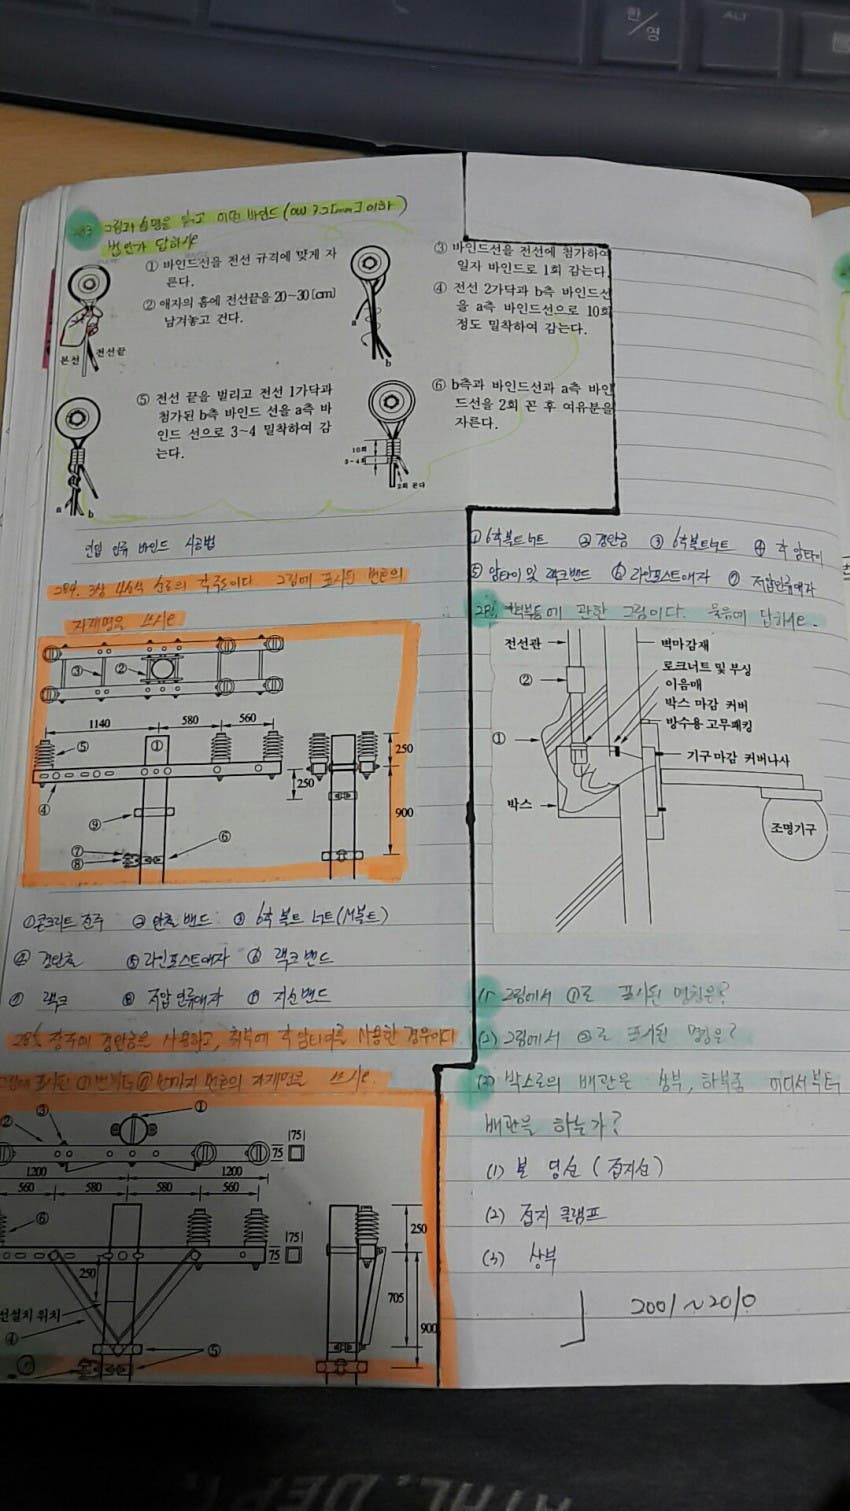 한/영
ALT
283 그림과 설명을 읽고 어떤 바인드(OW 3.2[mm] 이하)
법인가 답하시오
① 바인드선을 전선 규격에 맞게 자
른다.
② 애자의 홈에 전선끝을 20~30[cm]
남겨놓고 건다.
본선
전선끝
③ 바인드선을 전선에 첨가하여
일자 바인드로 1회 감는다.
④ 전선 2가닥과 b측 바인드선
을 a측 바인드선으로 10회
정도 밀착하여 감는다.
a
b
⑤ 전선 끝을 벌리고 전선 1가닥과
첨가된 b측 바인드 선을 a측 바
인드 선으로 3~4 밀착하여 감
는다.
a b
⑥ b측과 바인드선과 a측 바인
드선을 2회 꼰 후 여유분을
자른다.
10회
3~4회
2회 꼰다
인입 인류 바인드 시공법
284. 3상 4선식 선로의 장주도이다. 그림에 표시된 번호의
자재명을 쓰시오
③
②
1140
580
560
⑤
①
250
④
250
⑨
900
⑦
⑧
⑥
①콘크리트 전주 ②완철 밴드 ③ 6각 볼트 너트(M볼트)
④ 경완철 ⑤라인포스트애자 ⑥ 랙크밴드
⑦ 랙크 ⑧ 저압인류애자 ⑨ 지선밴드
285 장주에 경완금을 사용하고, 하부에 각 암타이를 사용한 경우이다
표시된 ①번부터 ⑦번까지 번호의 자재명을 쓰시오.
①
③
②
1200
1200
75
|75|
560
580
580
560
⑥
250
|75|
75
250
705
900
설치 위치
④
⑤
①6각볼트너트 ②경완금 ③ 6각볼트너트 ④ 각 암타이
⑤ 암타이 및 랙크밴드 ⑥ 라인포스트애자 ⑦ 저압인류애자
286 벽부등에 관한 그림이다. 물음에 답하시오.
전선관
벽마감재
②
로크너트 및 부싱
이음매
박스 마감 커버
방수용 고무패킹
①
기구마감 커버나사
박스
조명기구
(1) 그림에서 ①로 표시된 명칭은?
(2) 그림에서 ②로 표시된 명칭은?
(3) 박스로의 배관은 상부, 하부중 어디서부터
배관을 하는가?
(1) 본딩선 (접지선)
(2) 접지 클램프
(3) 상부
2001~2010